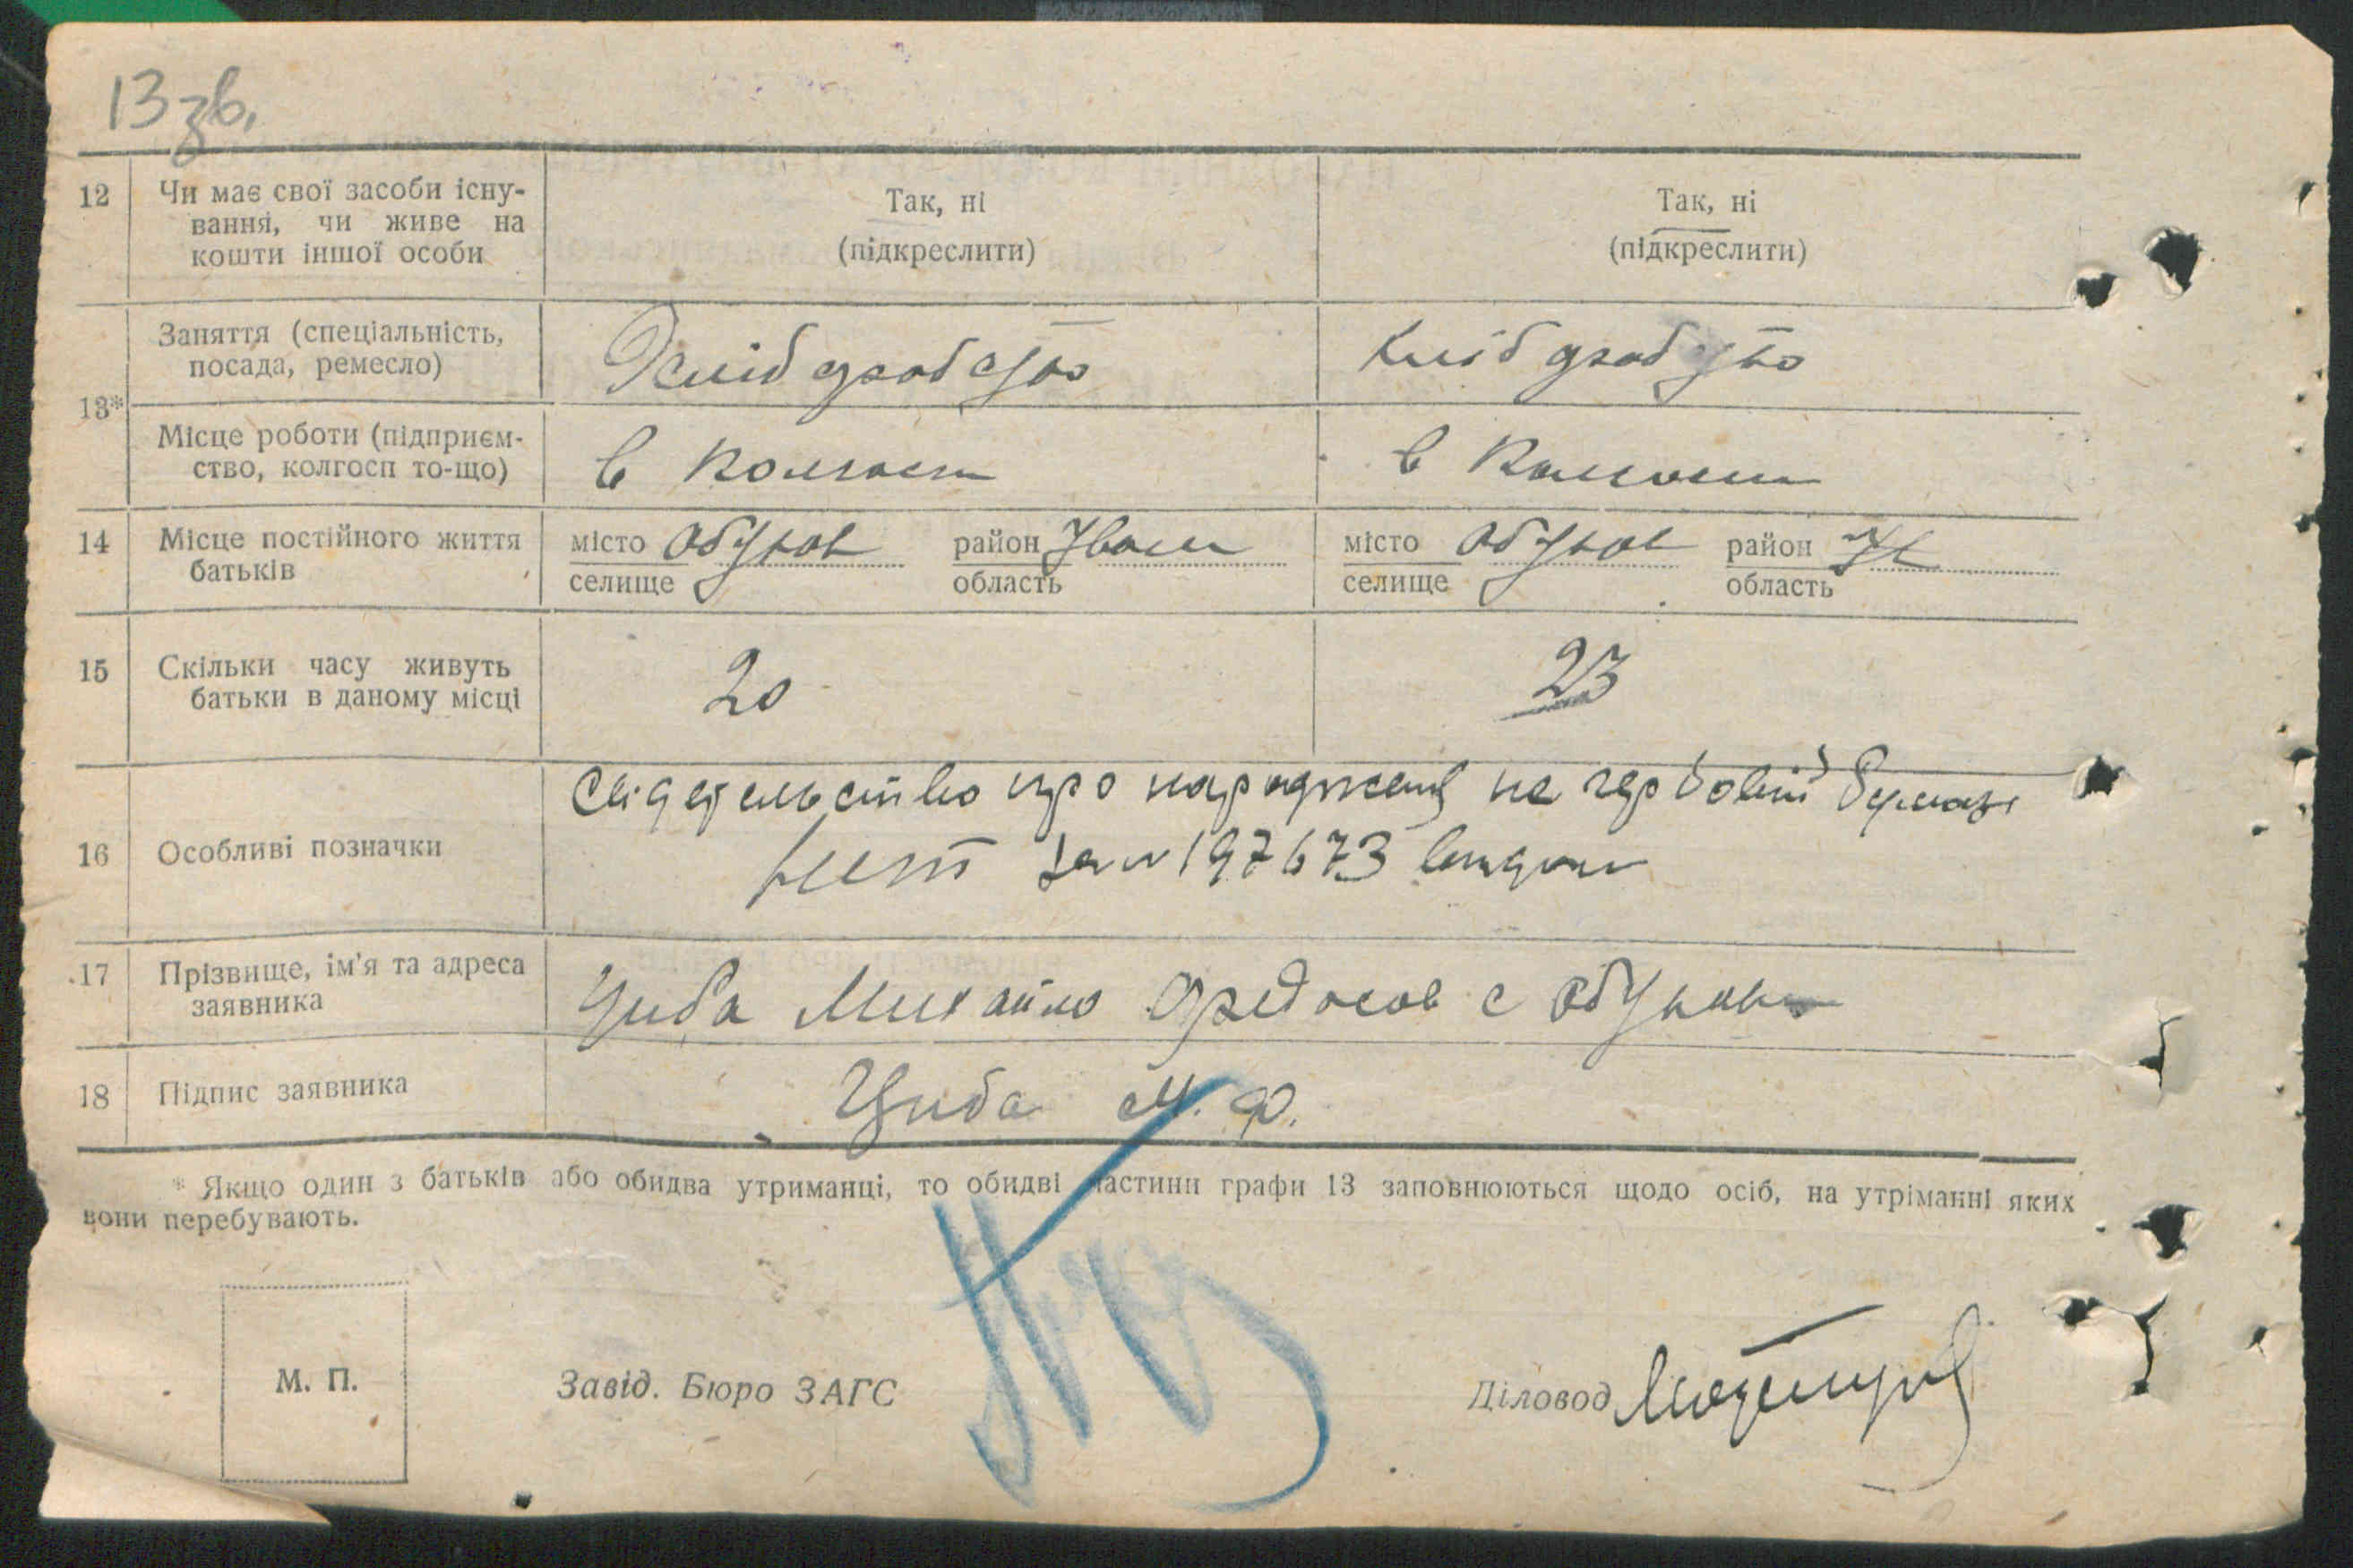 13 зв.
12 Чи має свої засоби існу- Так, ні Так, ні
вання, чи живе на (підкреслити) (підкреслити)
кошти іншої особи
13* Заняття (спеціальність,
посада, ремесло)
Місце роботи (підприєм- в колгосп в колгосп
ство, колгосп то-що)
14 Місце постійного життя місто Обухов район місто Обухов район
батьків селище область селище область
15 Скільки часу живуть 20 23
батьки в даному місці
про народження на гербовій бумазі
16 Особливі позначки 197673
17 Прізвище, ім'я та адреса Циба Михайло с Обухов
заявника
18 Підпис заявника Циба М. Ф.
* Якщо один з батьків або обидва утриманці, то обидві частини графи 13 заповнюються щодо осіб, на утріманні яких
вони перебувають.
М. П. Завід. Бюро ЗАГС Діловод